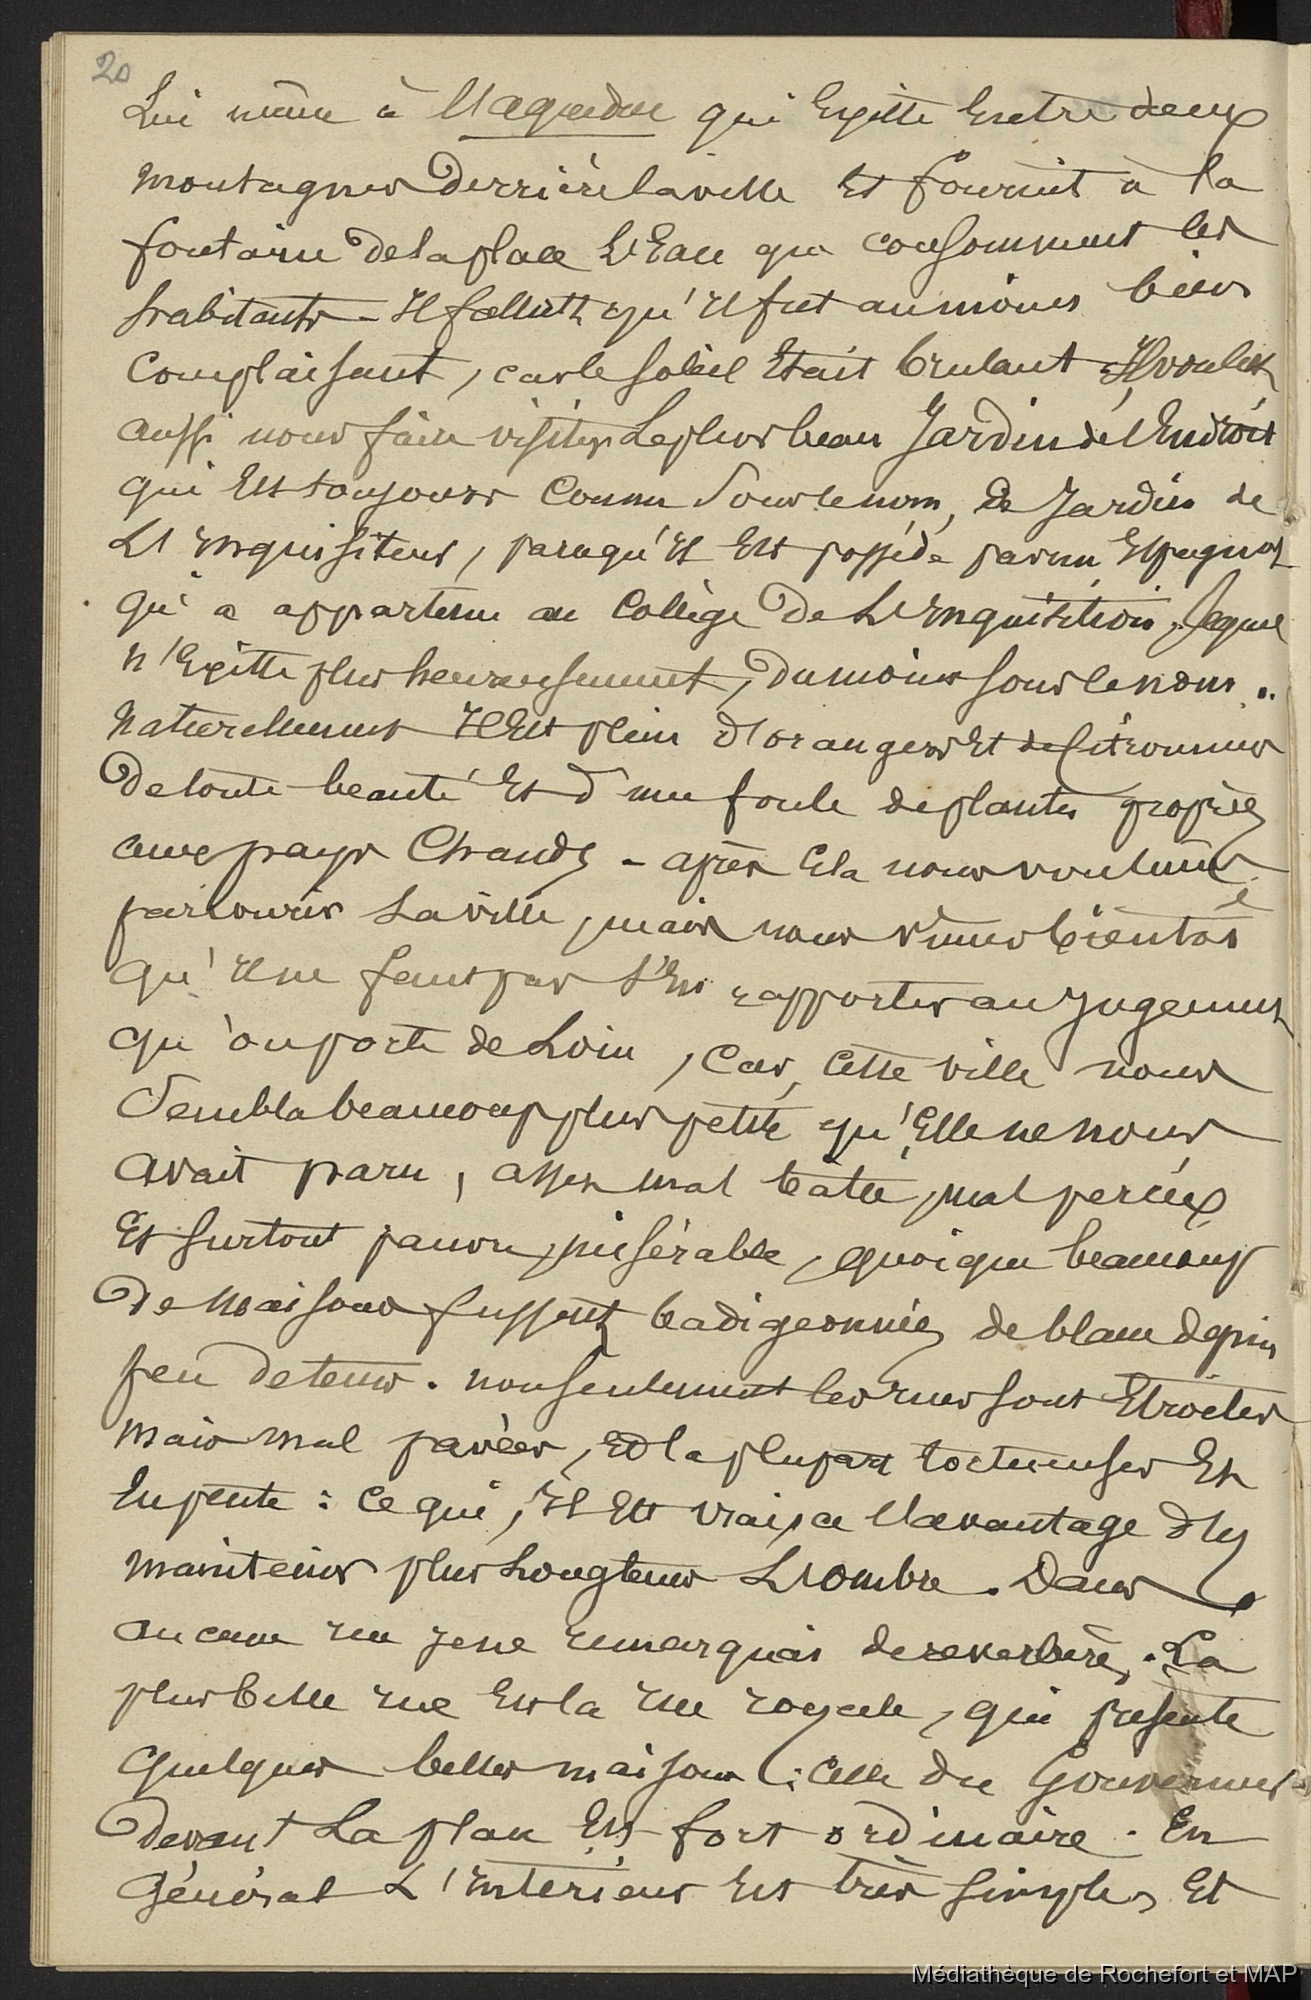 20
Lui même à l'aqueduc qui Existe Entre deux
montagnes Derrière la ville Et fournit à la
fontaine De la place L'Eau que consomment les
habitants - Il fallutt qu'Il fut au moins bien
Complaisant, car le soleil Etait brulant. Il voulut
aussi nous faire visiter Le plus beau Jardin de l'Endroit
qui Est toujours Connu Sous le nom de Jardin de
L'Inquisiteur, parcequ'Il Est possédé par un Espagnol
qui a appartenu au Collège De L'Inquisition, Lequel
n'Existe plus heureusement, Du moins sous le nom.
Naturellement Il Est plein d'orangers Et de Citronniers
De toute beauté Et D'une foule de plantes propres
aux pays Chauds - après Cela nous voulumes
parcourir La ville, mais nous vîmes bientôt
qu'Il ne faut pas S'En rapporter au Jugement
qu'on porte de Loin, Car Cette ville nous
Sembla beaucoup plus petite qu'Elle ne nous
avait paru, assez mal batie, mal percée,
Et surtout pauvre, misérable, quoique beaucoup
De Maisons fussent badigeonnées de blanc depuis
peu De tems. non seulement les rues sont Etroites
mais mal pavées, Et la plupart tortueuses Et
En pente : Ce qui, Il Est vrai, a l'avantage d'y
maintenir plus Longtems L'ombre. Dans
aucune rue Je ne remarquai de reverbère. La
plus belle rue Est la rue royale, qui présente
quelques belles maisons ; Celle du Gouverneur
Devant La place Est fort ordinaire. En
Général L'Intérieur Est très simple, Et
Médiathèque de Rochefort et MAP